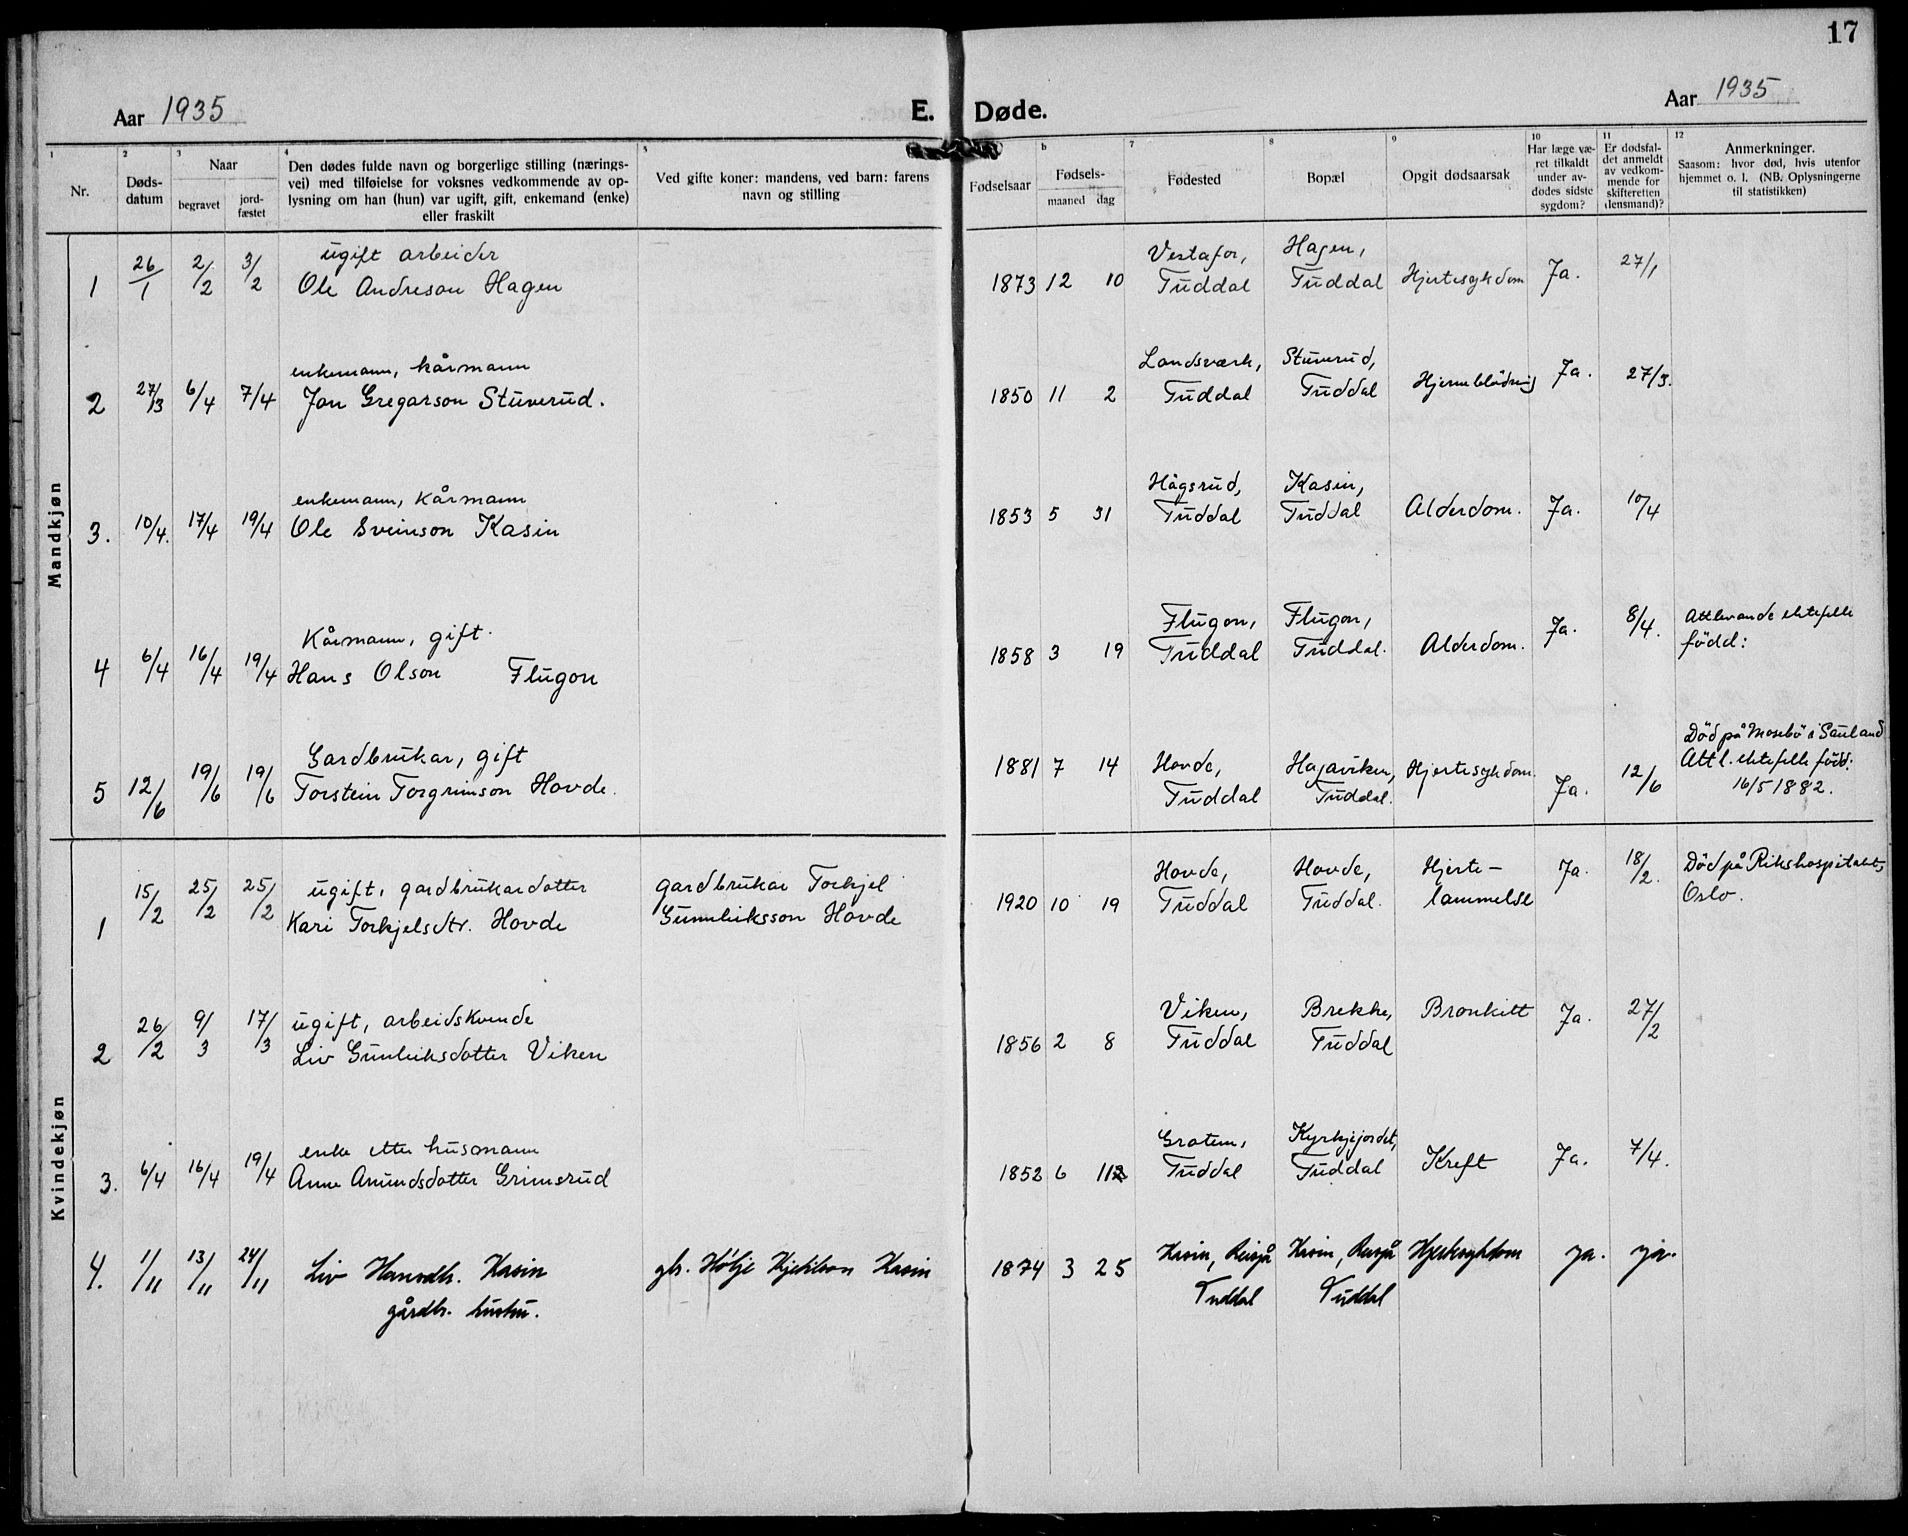 17
Aar 1935
E. Døde.
Aar 1935
1
2
3
4
5
6
7
8
9
10
11
12
Nr.
Døds-
datum
Naar
begravet
jord-
fæstet
Den dødes fulde navn og borgerlige stilling (nærings-
vei) med tilføielse for voksnes vedkommende av op-
lysning om han (hun) var ugift, gift, enkemand (enke)
eller fraskilt
Ved gifte koner: mandens, ved barn: farens
navn og stilling
Fødselsaar
Fødsels-
maaned dag
Fødested
Bopæl
Opgit dødsaarsak
Har læge væ-
ret tilkaldt
under av-
dødes sidste
sygdom?
Er dødsfal-
det anmeldt
av vedkom-
mende for
skifteretten
(lensmand)?
Anmerkninger.
Saasom: hvor død, hvis utenfor
hjemmet o. l. (NB. Oplysningerne
til statistikken)
Mandkjøn
1 26/1 2/2 3/2 ugift arbeider
Ole Andreson Hagen
1873 12 10 Vestafor,
Tuddal
Hagen,
Tuddal
Hjertesykdom Ja. 27/1
2 27/3 6/4 7/4 enkemann, kårmann
Jon Gregarson Stuverud.
1850 11 2 Landsværk,
Tuddal
Stuverud,
Tuddal
Hjerneblödning Ja. 27/3.
3. 10/4. 17/4 19/4 enkemann, Kårmann
Ole Sveinson Kasin
1853 5 31 Hågsrud,
Tuddal
Kasin,
Tuddal
Alderdom. Ja. 10/4
4 6/4 16/4 19/4 Kårmann, gift.
Hans Olson Flugon
1858 3 19 Flugon,
Tuddal
Flugon,
Tuddal.
Alderdom. Ja. 8/4.
Attlevande ektefelle
född:
5 12/6 19/6 19/6 Gardbrukar, gift
Torstein Torgrimson Hovde.
1881 7 14 Hovde,
Tuddal
Hagaviken,
Tuddal.
Hjertesykdom. Ja. 12/6
Död på Mosebö i Sauland
Attl. ektefelle född:
16/5 1882.
Kvindekjøn
1 15/2 25/2 25/2 ugift, gardbrukardotter
Kari Torkjelsdtr. Hovde
gardbrukar Torkjel
Gunnleiksson Hovde
1920 10 19 Hovde,
Tuddal
Hovde,
Tuddal.
Hjerte-
lammelse
Ja. 18/2.
Död på Rikshospitalet,
Oslo.
2 26/2 9/3 17/3 ugift, arbeidskvende
Liv Gunleiksdotter Viken
1856 2 8 Viken,
Tuddal
Brekke,
Tuddal
Bronkitt Ja. 27/2
3. 6/4 16/4 19/4 enke etter husmann
Anne Amundsdotter Grimsrud
1852 6 Groten,
Tuddal
Kyrkjejordet,
Tuddal
Kreft Ja. 7/4.
4. 1/11 13/11 24/11 Liv Hansdtr. Kasin
gårdbr. hustru.
gbr. Hølje Kjetilson Kasin
1874 3 25 Kasin, Reisjå
Tuddal
Kasin, Reisjå
Tuddal
Hjertesykdom ja. ja.